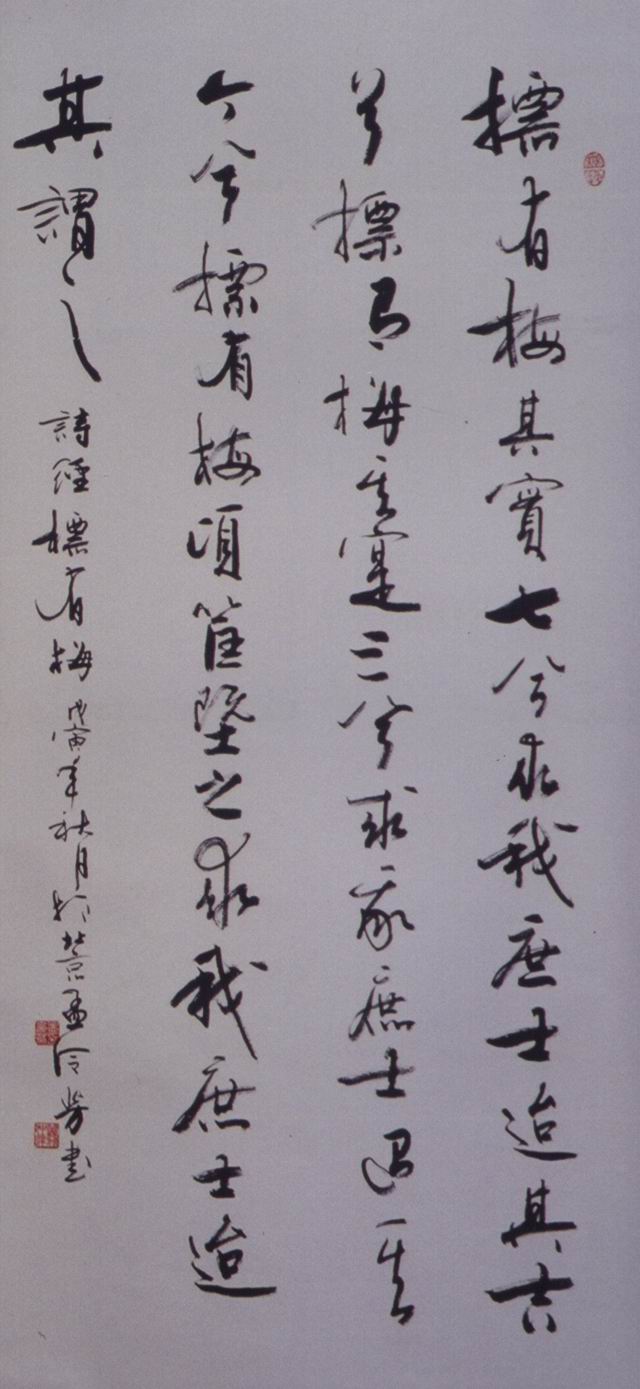 摽有梅其實七兮求我庶士迨其吉
兮摽有梅其寔三兮求我庶士迨其
今兮摽有梅頃筐塈之求我庶士迨
其謂之 詩經摽有梅 戊寅年秋月於北京孟令芳書